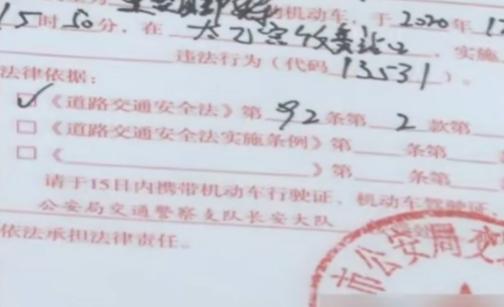 的机动车,于2020年1
15时50分,在太乙宫收费站口,实施
违法行为(代码13531)。
法律依据:
☑《道路交通安全法》第92条第2款第
☐《道路交通安全法实施条例》第 条第
☐《 》第 条第
请于15日内携带机动车行驶证、机动车驾驶证
公安局交通警察支队长安大队
依法承担法律责任。
市公安局交